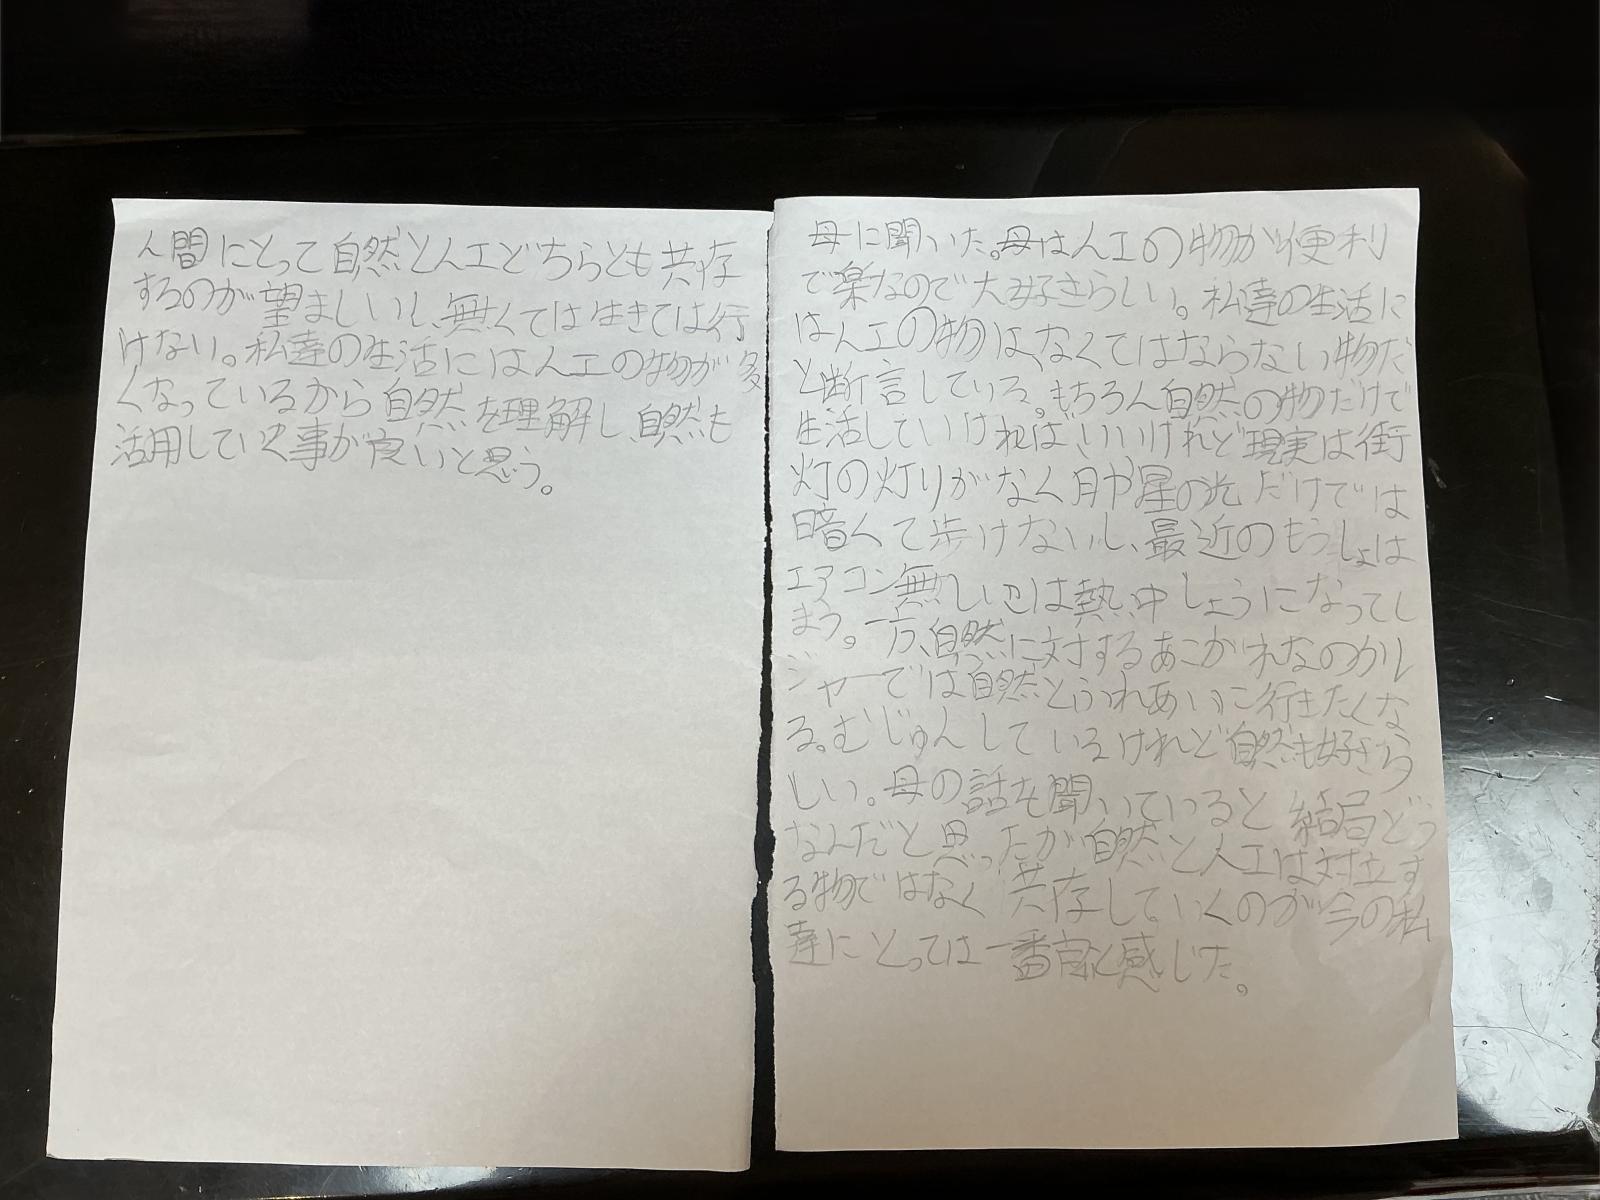 人間にとって自然と人工どちらとも共存
するのが望ましいし、無くては生きては行
けない。私達の生活には人工の物が多
くなっているから自然を理解し、自然も
活用していく事が良いと思う。
母に聞いた。母は人工の物が便利
で楽なので大好きらしい。私達の生活に
は人工の物は、なくてはならない物だ
と断言している。もちろん自然の物だけで
生活していければいいけれど現実は街
灯の灯りがなく月や星の光だけでは
暗くて歩けないし、最近のもうしょは
エアコン無しでは熱中しょうになってし
まう。一方、自然に対するあこがれなのかレ
ジャーでは自然とふれあいに行きたくな
る。むじゅんしているけれど自然も好きら
しい。母の話を聞いていると結局どう
なんだと思ったが自然と人工は対立す
る物ではなく共存していくのが今の私
達にとっては一番良いと感じた。